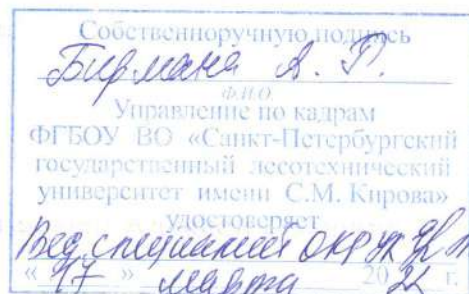 Собственноручную подпись
Бирмана А. Р.
Ф.И.О.
Управление по кадрам
ФГБОУ ВО «Санкт-Петербургский
государственный лесотехнический
университет имени С.М. Кирова»
удостоверяет
Вед. специалист
«17» марта 20 г.